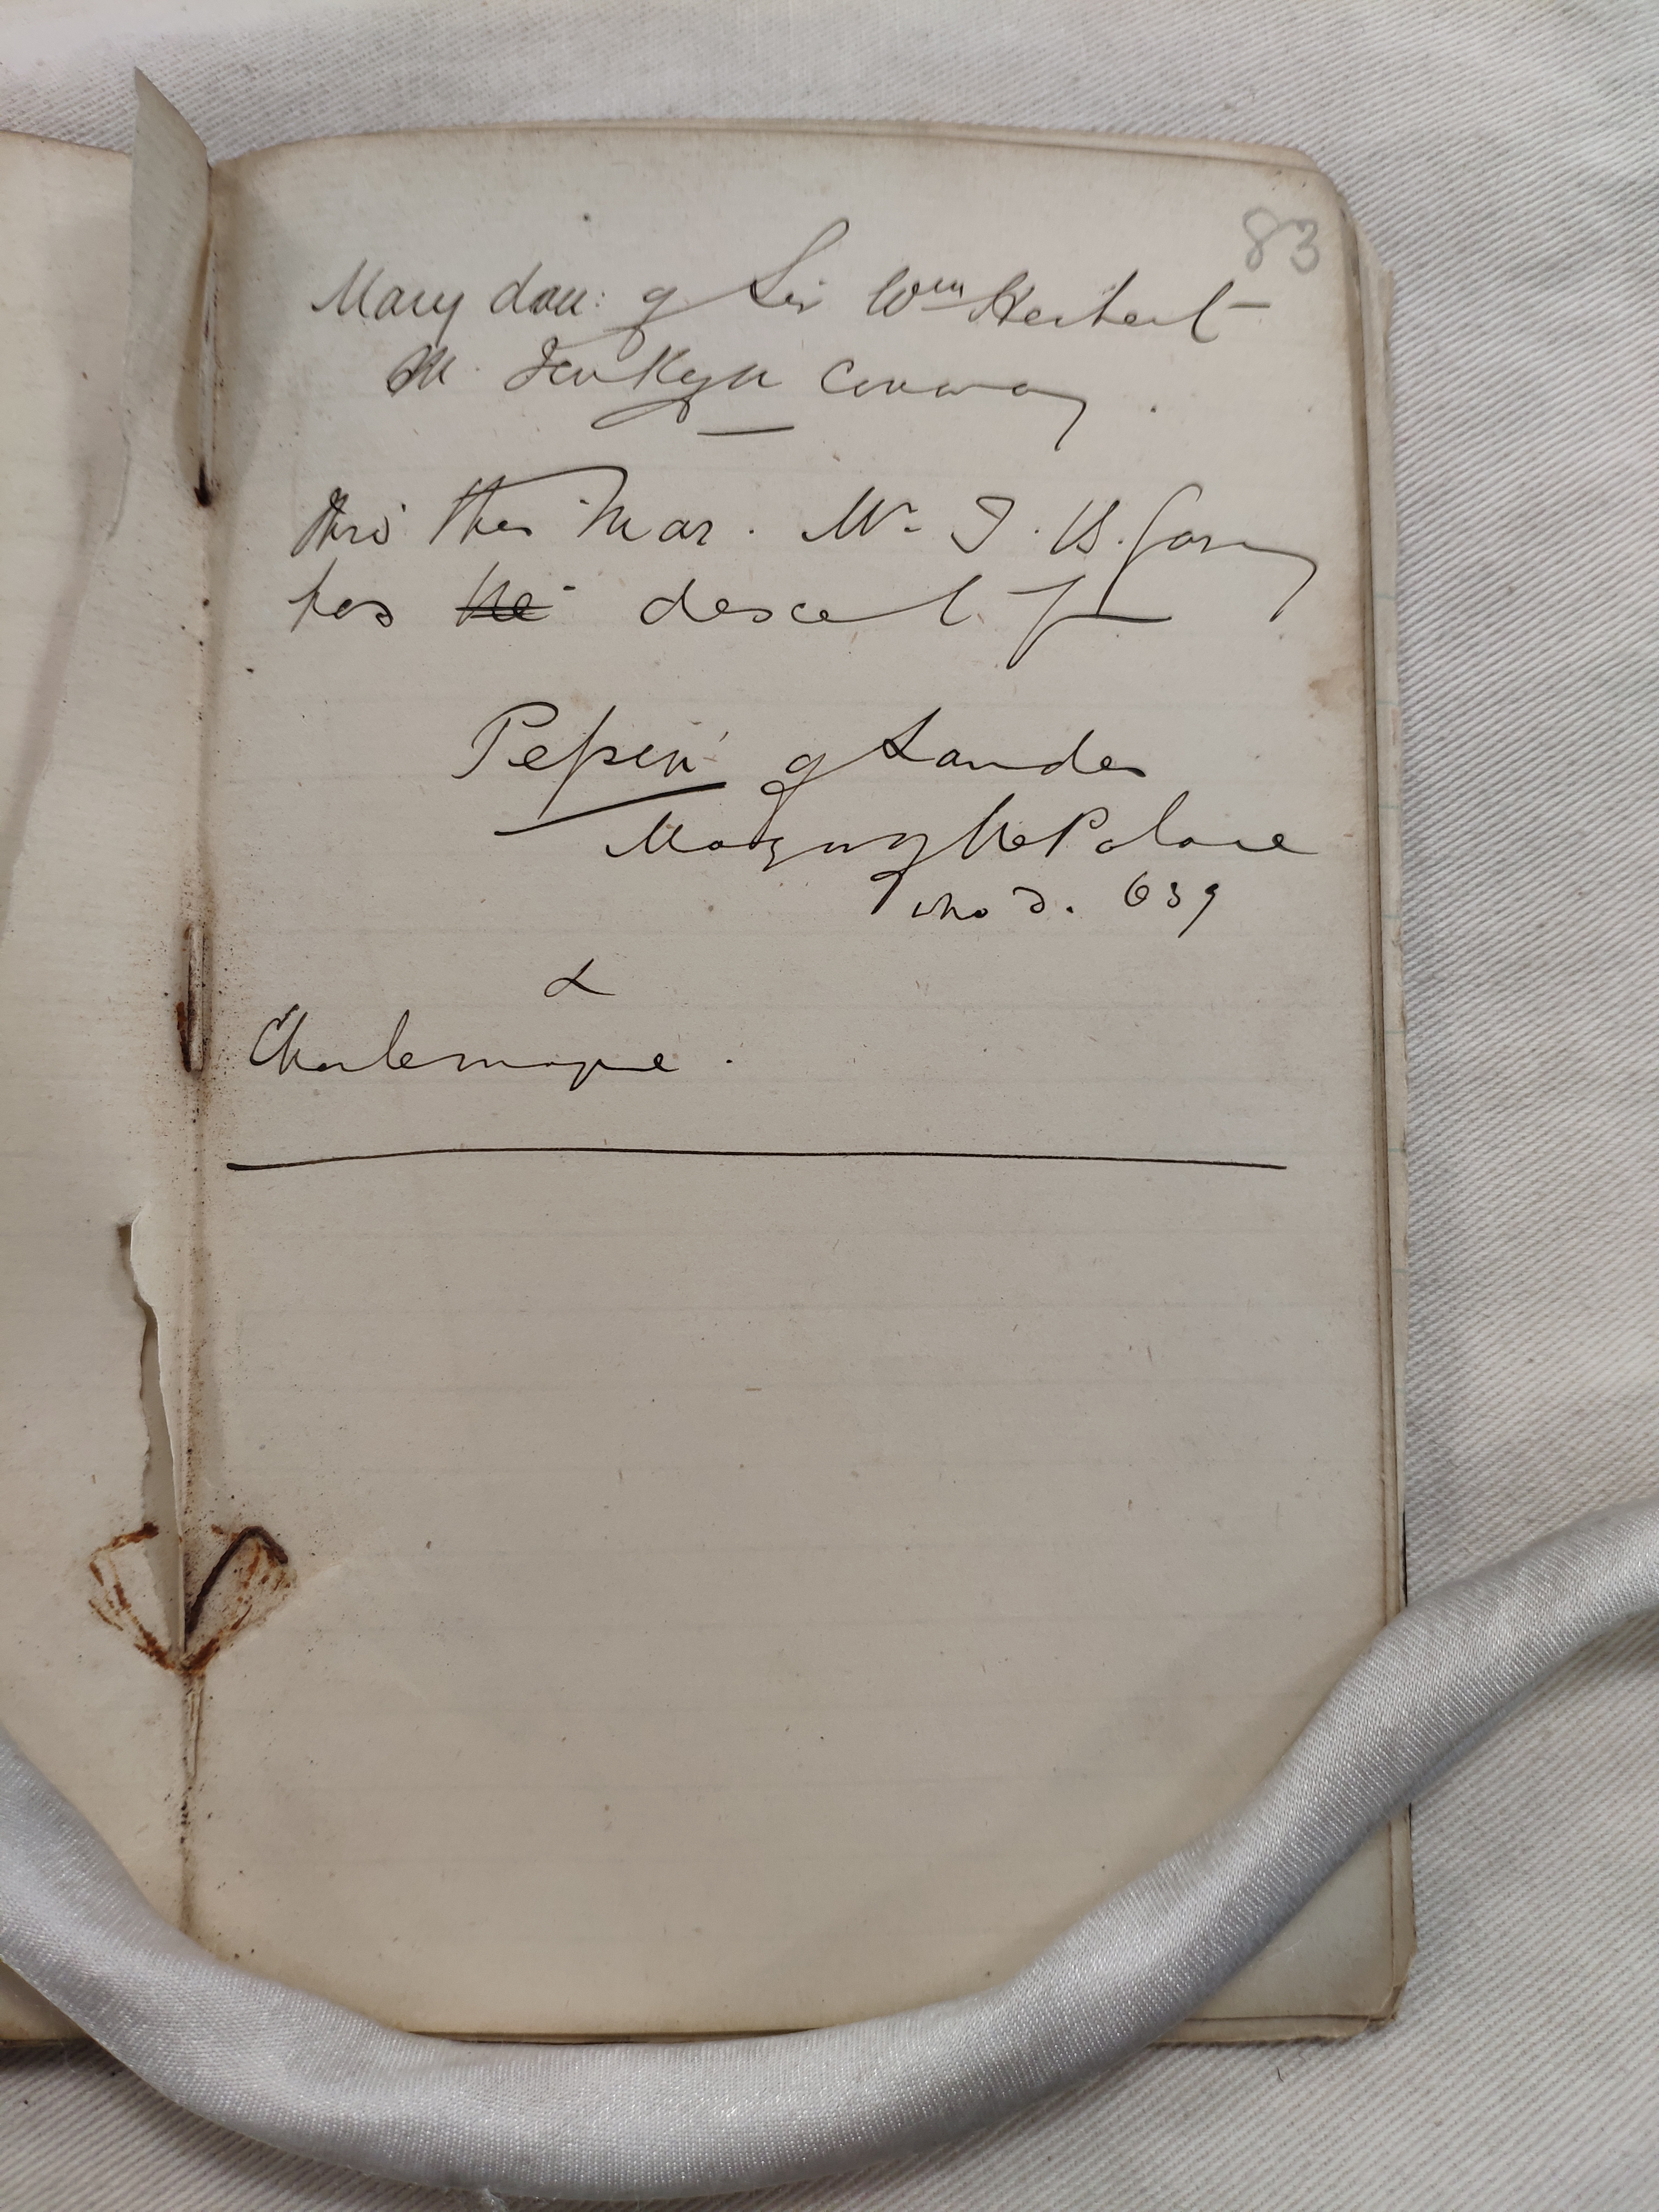 83
Mary dau: of Sir Wm Herbert
M. Jenkyn Conway.
thro' this Mar. Mr J. B.
has the descent from
Pepin of Landen
Mayor of the Palace
who d. 639
&
Charlemagne.